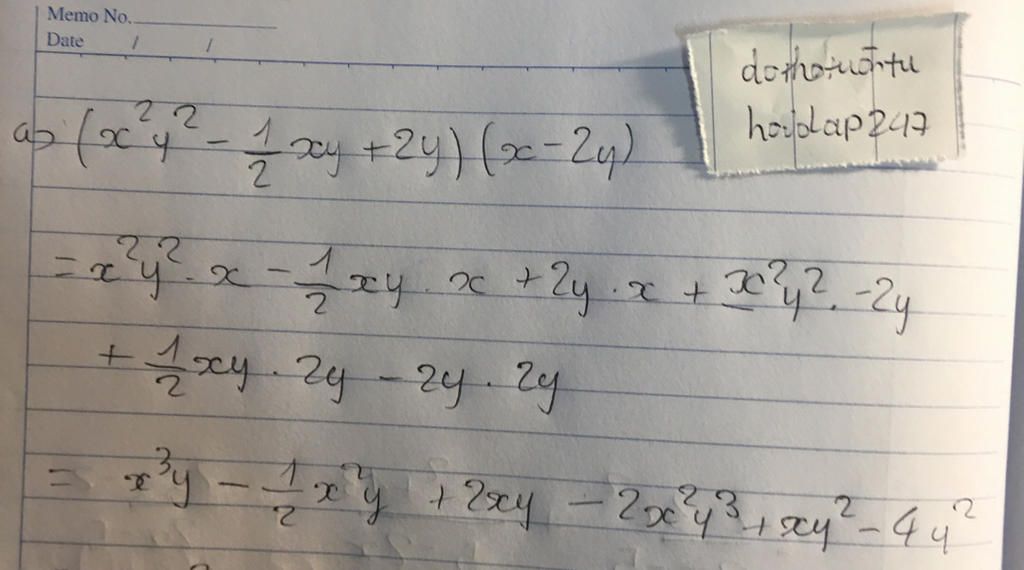 Memo No.
Date / /
dothotuantu
hoidap247
a) (x²y² - 1/2 xy + 2y) (x - 2y)
= x²y² . x - 1/2 xy . x + 2y . x + x²y² . -2y
+ 1/2 xy . 2y - 2y . 2y
= x³y - 1/2 x²y + 2xy - 2x²y³ + xy² - 4y²